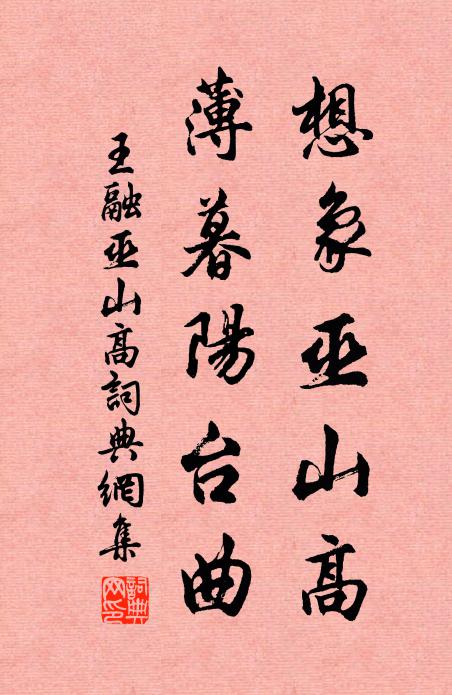 想象巫山高
薄暮陽台曲
王融巫山高詞典網集
詞典網印